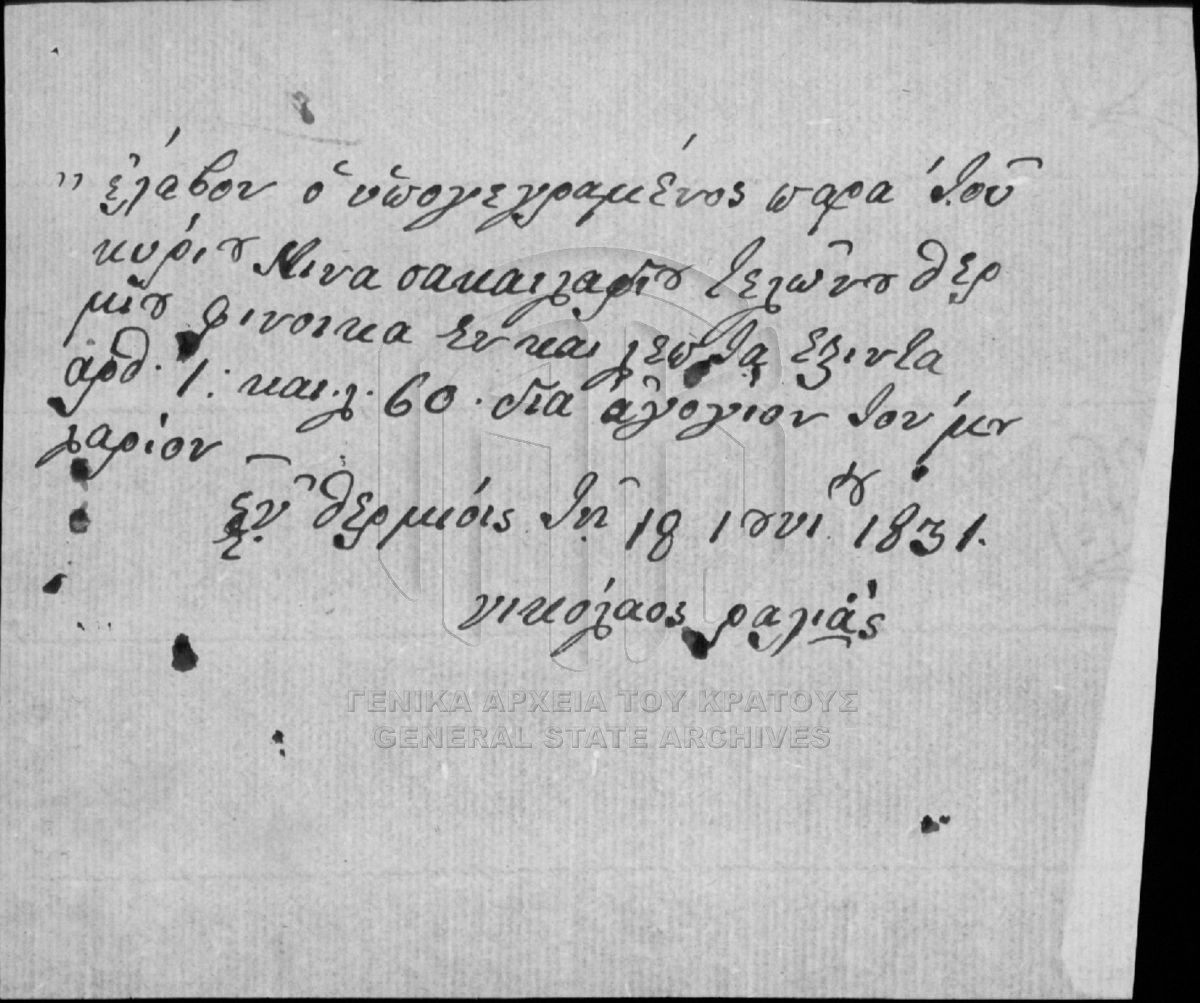 „ ἐλάβον ὁ ὑπογεγραμένος παρα τοῦ
κυρίου Μινα σακαιλαρίου τελώνου θερ
μίου φινοικα εν και λεπτα εξιντα
αρθ. 1: και λ. 60. δια ἀγογιον του μου
λαρίου
ἐν θερμιόις τῇ 18 ιουνίου 1831.
νικολαος ραλιάς
ΓΕΝΙΚΑ ΑΡΧΕΙΑ ΤΟΥ ΚΡΑΤΟΥΣ
GENERAL STATE ARCHIVES